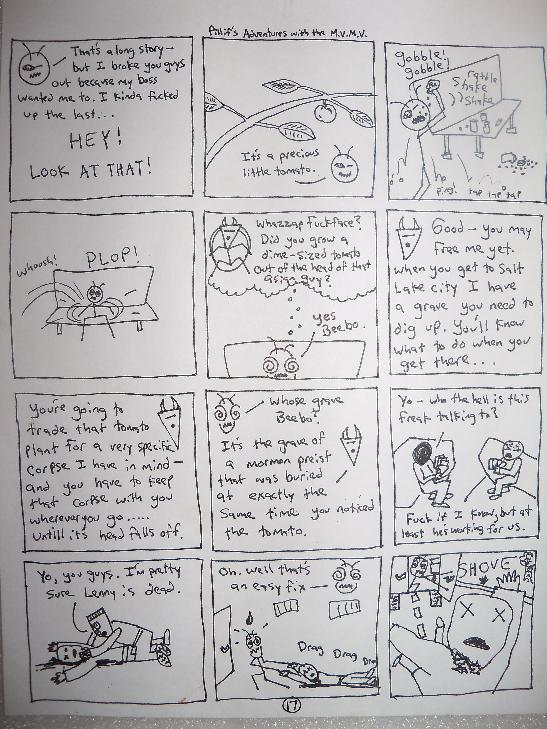 Pillif's Adventures with the M.V.M.V.
That's a long story-
but I broke you guys
out because my boss
wanted me to. I kinda fucked
up the last...
HEY!
LOOK AT THAT!
It's a precious
little tomato.
gobble!
gobble!
rattle
Shake
Shake
Ping!
tap tap tap
Whoosh!
PLOP!
Whazzap Fuckface?
Did you grow a
dime-sized tomato
out of the head of that
guy?
yes
Beebo.
Good - you may
free me yet.
when you get to Salt
Lake city I have
a grave you need to
dig up. You'll know
what to do when you
get there...
You're going to
trade that tomato
plant for a very specific
corpse I have in mind-
and you have to keep
that corpse with you
wherever you go.....
Untill it's head falls off.
whose grave
Beebo?
It's the grave of
a mormon preist
that was buried
at exactly the
same time you noticed
the tomato.
Yo - who the hell is this
freak talking to?
Fuck if I know, but at
least he's working for us.
Yo, you guys. I'm pretty
sure Lenny is dead.
Oh. well that's
an easy fix
Drag Drag Drag
SHOVE
17